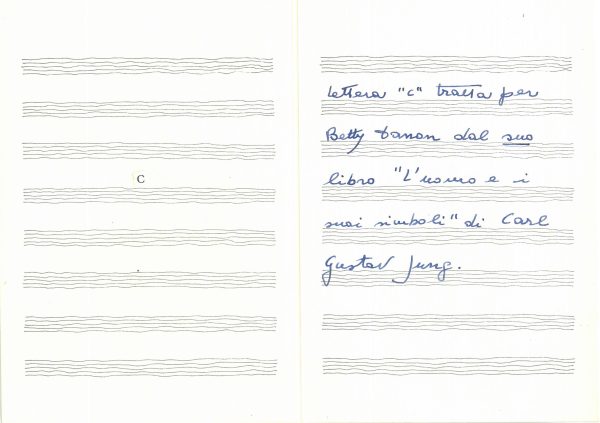 C
lettera "C" tratta per
Betty Danon dal suo
libro "L'uomo e i
suoi simboli" di Carl
Gustav Jung.